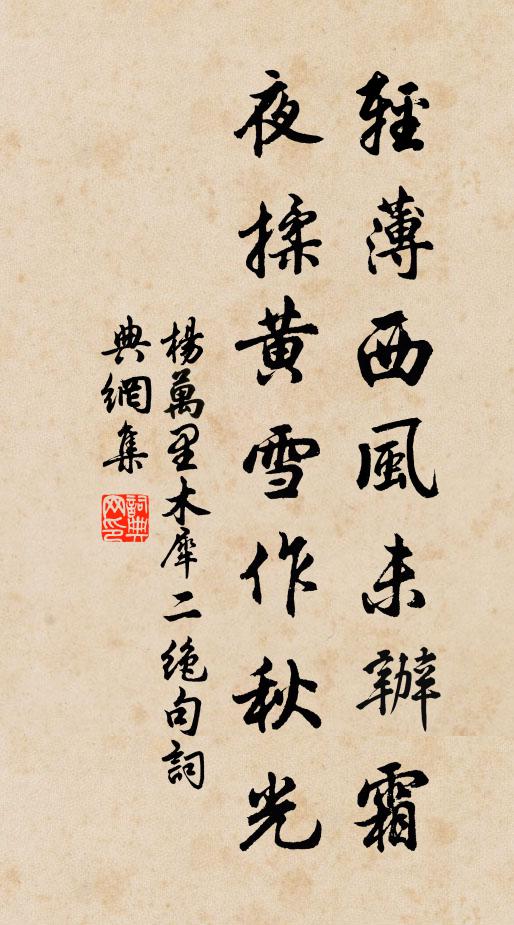 輕薄西風未辦霜
夜揉黃雪作秋光
楊萬里木犀二絕句詞
典網集
詞典網印